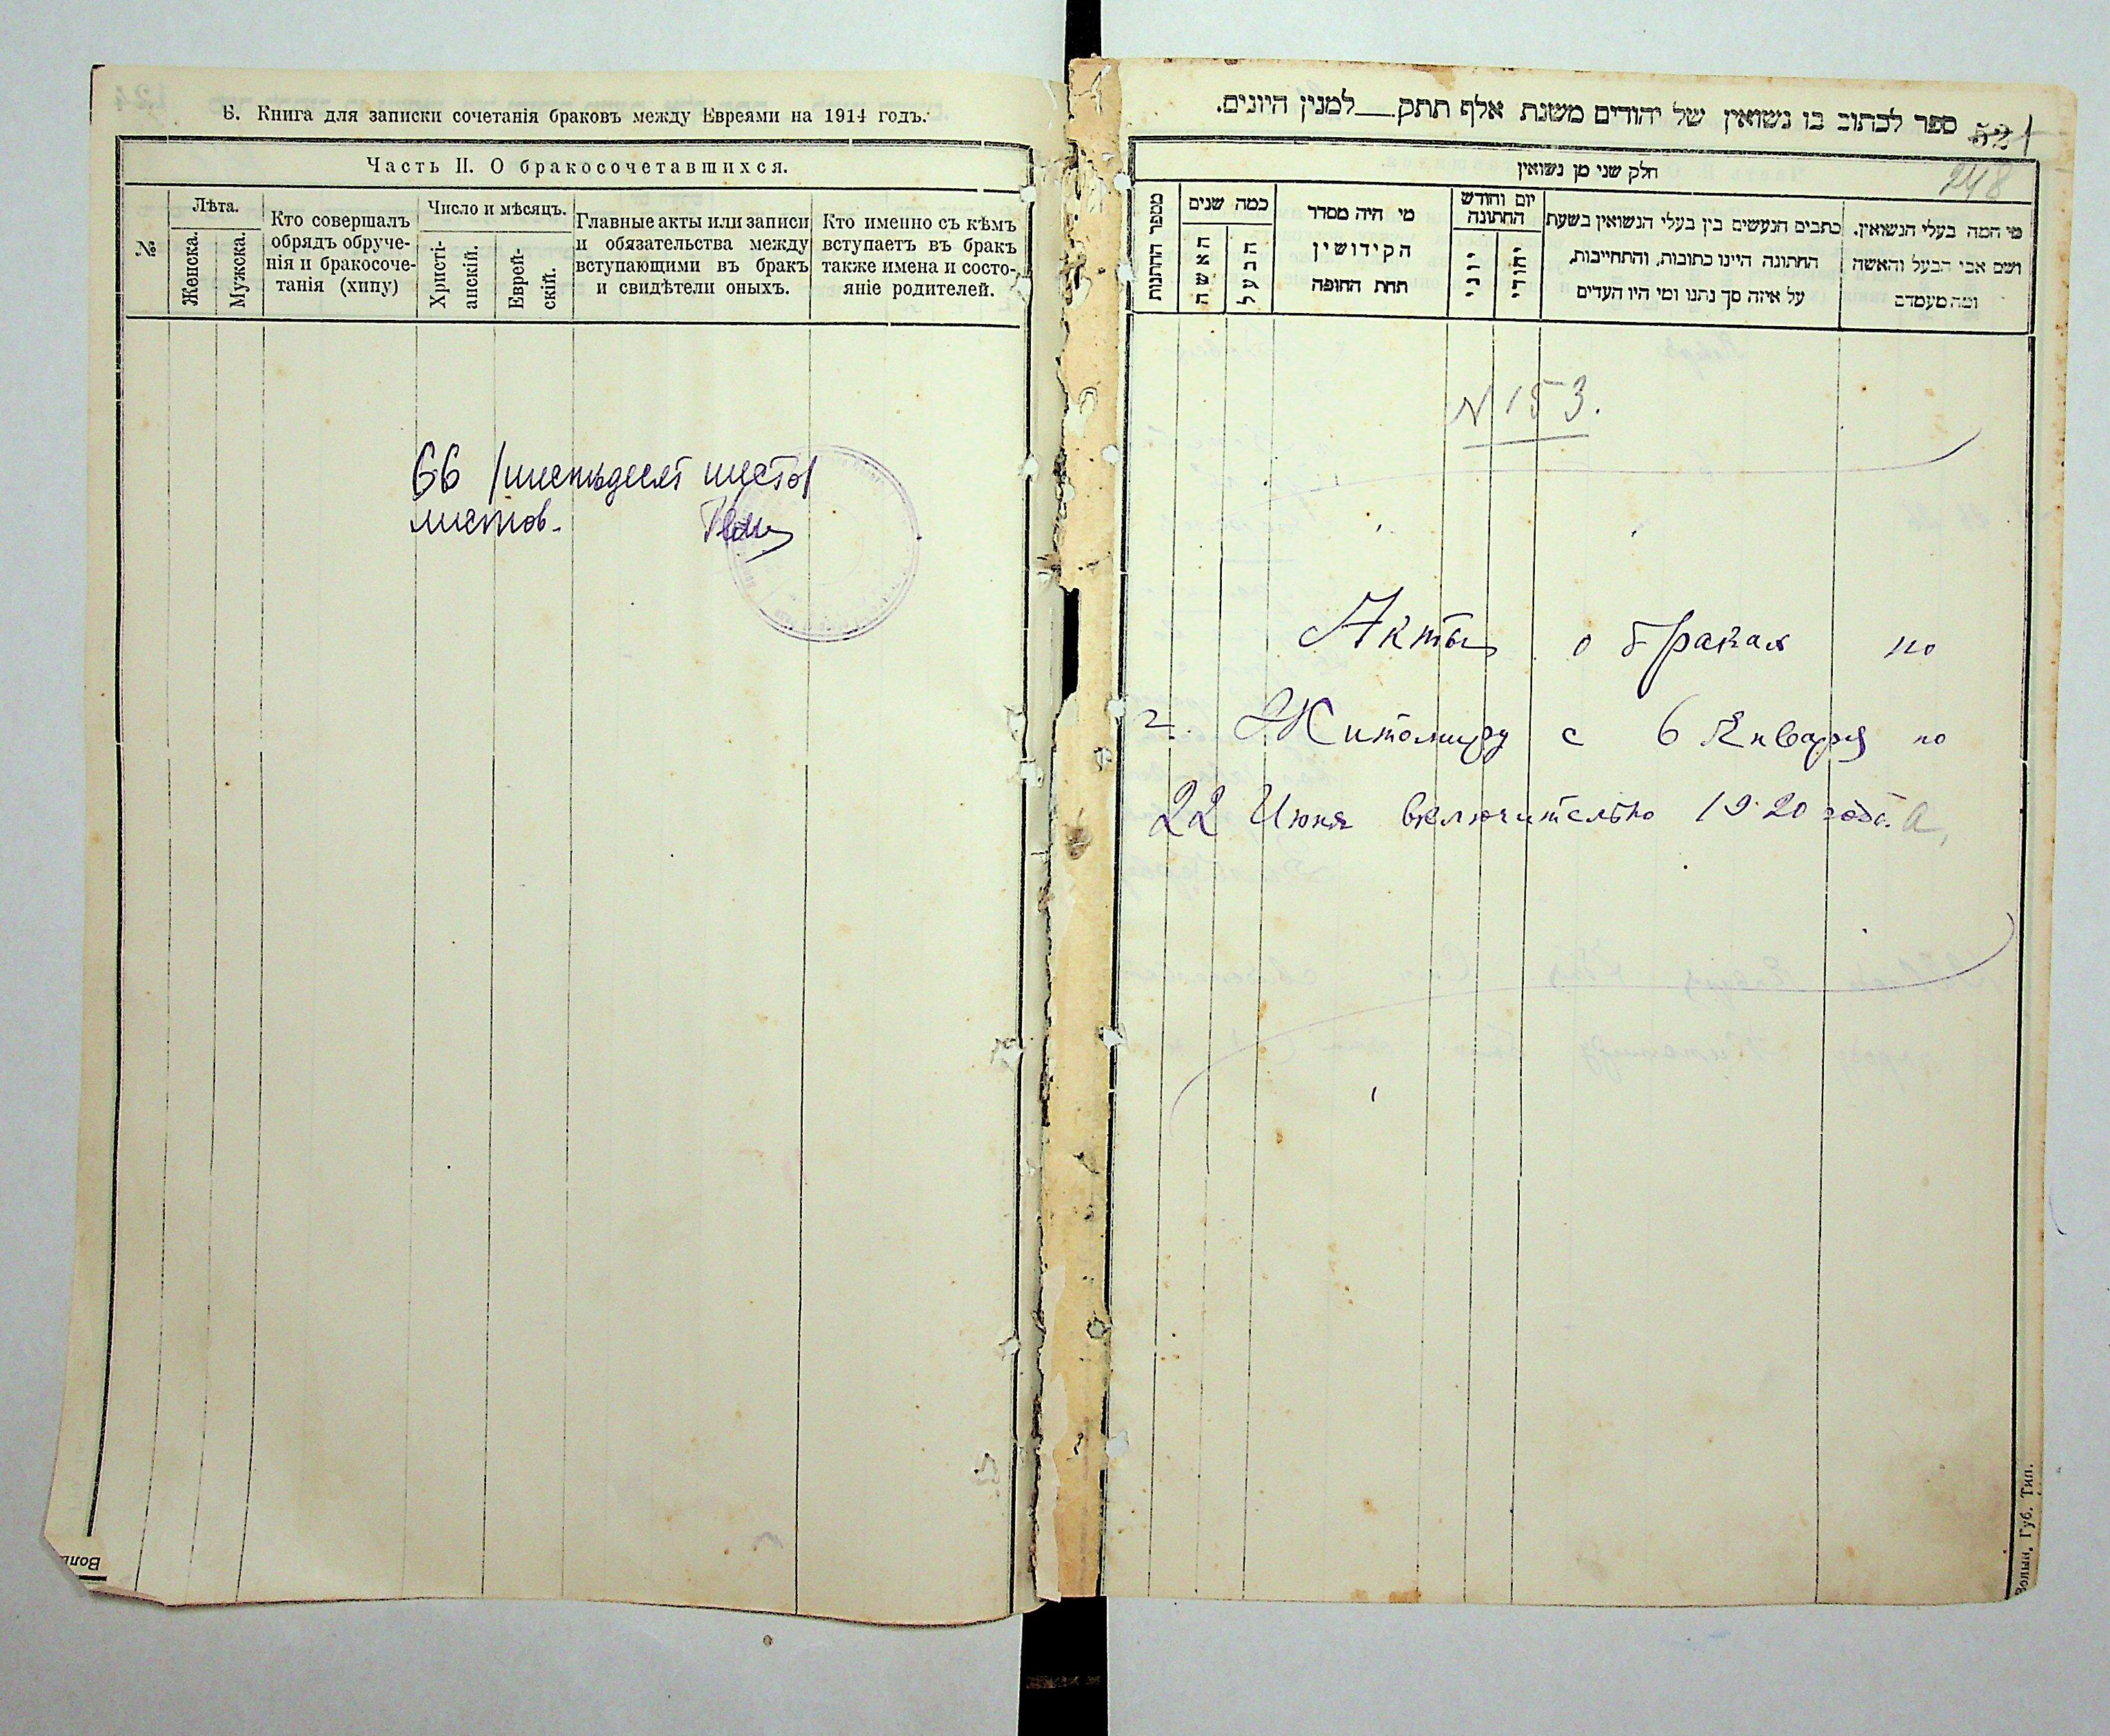 Б. Книга для записки сочетанія браковъ между Евреями на 1914 годъ.
Часть II. О бракосочетавшихся.
№
Лѣта.
Женска.
Мужска.
Кто совершалъ
обрядъ обруче-
нія и бракосоче-
танія (хипу)
Число и мѣсяцъ.
Христі-
анскій.
Еврей-
скій.
Главные акты или записи
и обязательства между
вступающими въ бракъ
и свидѣтели оныхъ.
Кто именно съ кѣмъ
вступаетъ въ бракъ
также имена и состо-
яніе родителей.
66 /шестьдесят шесть/
листов.
ספר לכתוב בו נשואין של יהודים משנת אלף תתק___למנין היונים.
52
1
248
חלק שני מן נשואין
מספר החתונות
כמה שנים
האשה
הבעל
מי היה מסדר
הקידושין
תחת החופה
יום וחודש
החתונה
יוני
יהודי
כתבים הנעשים בין בעלי הנשואין בשעת
החתונה היינו כתובות, והתחייבות,
על איזה סך נתנו ומי היו העדים
מי המה בעלי הנשואין.
ושם אבי הבעל והאשה
ומה מעמדם
N 153.
Акты о браках по
г. Житомиру с 6 Января по
22 Июня включительно 1920 года.
Волын. Губ. Тип.